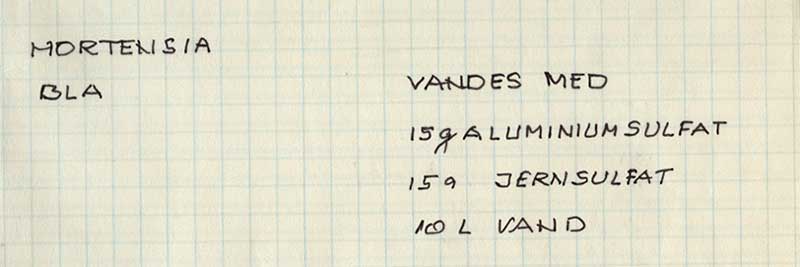 HORTENSIA
BLA
VANDES MED
15g ALUMINIUMSULFAT
15g JERNSULFAT
10 L VAND